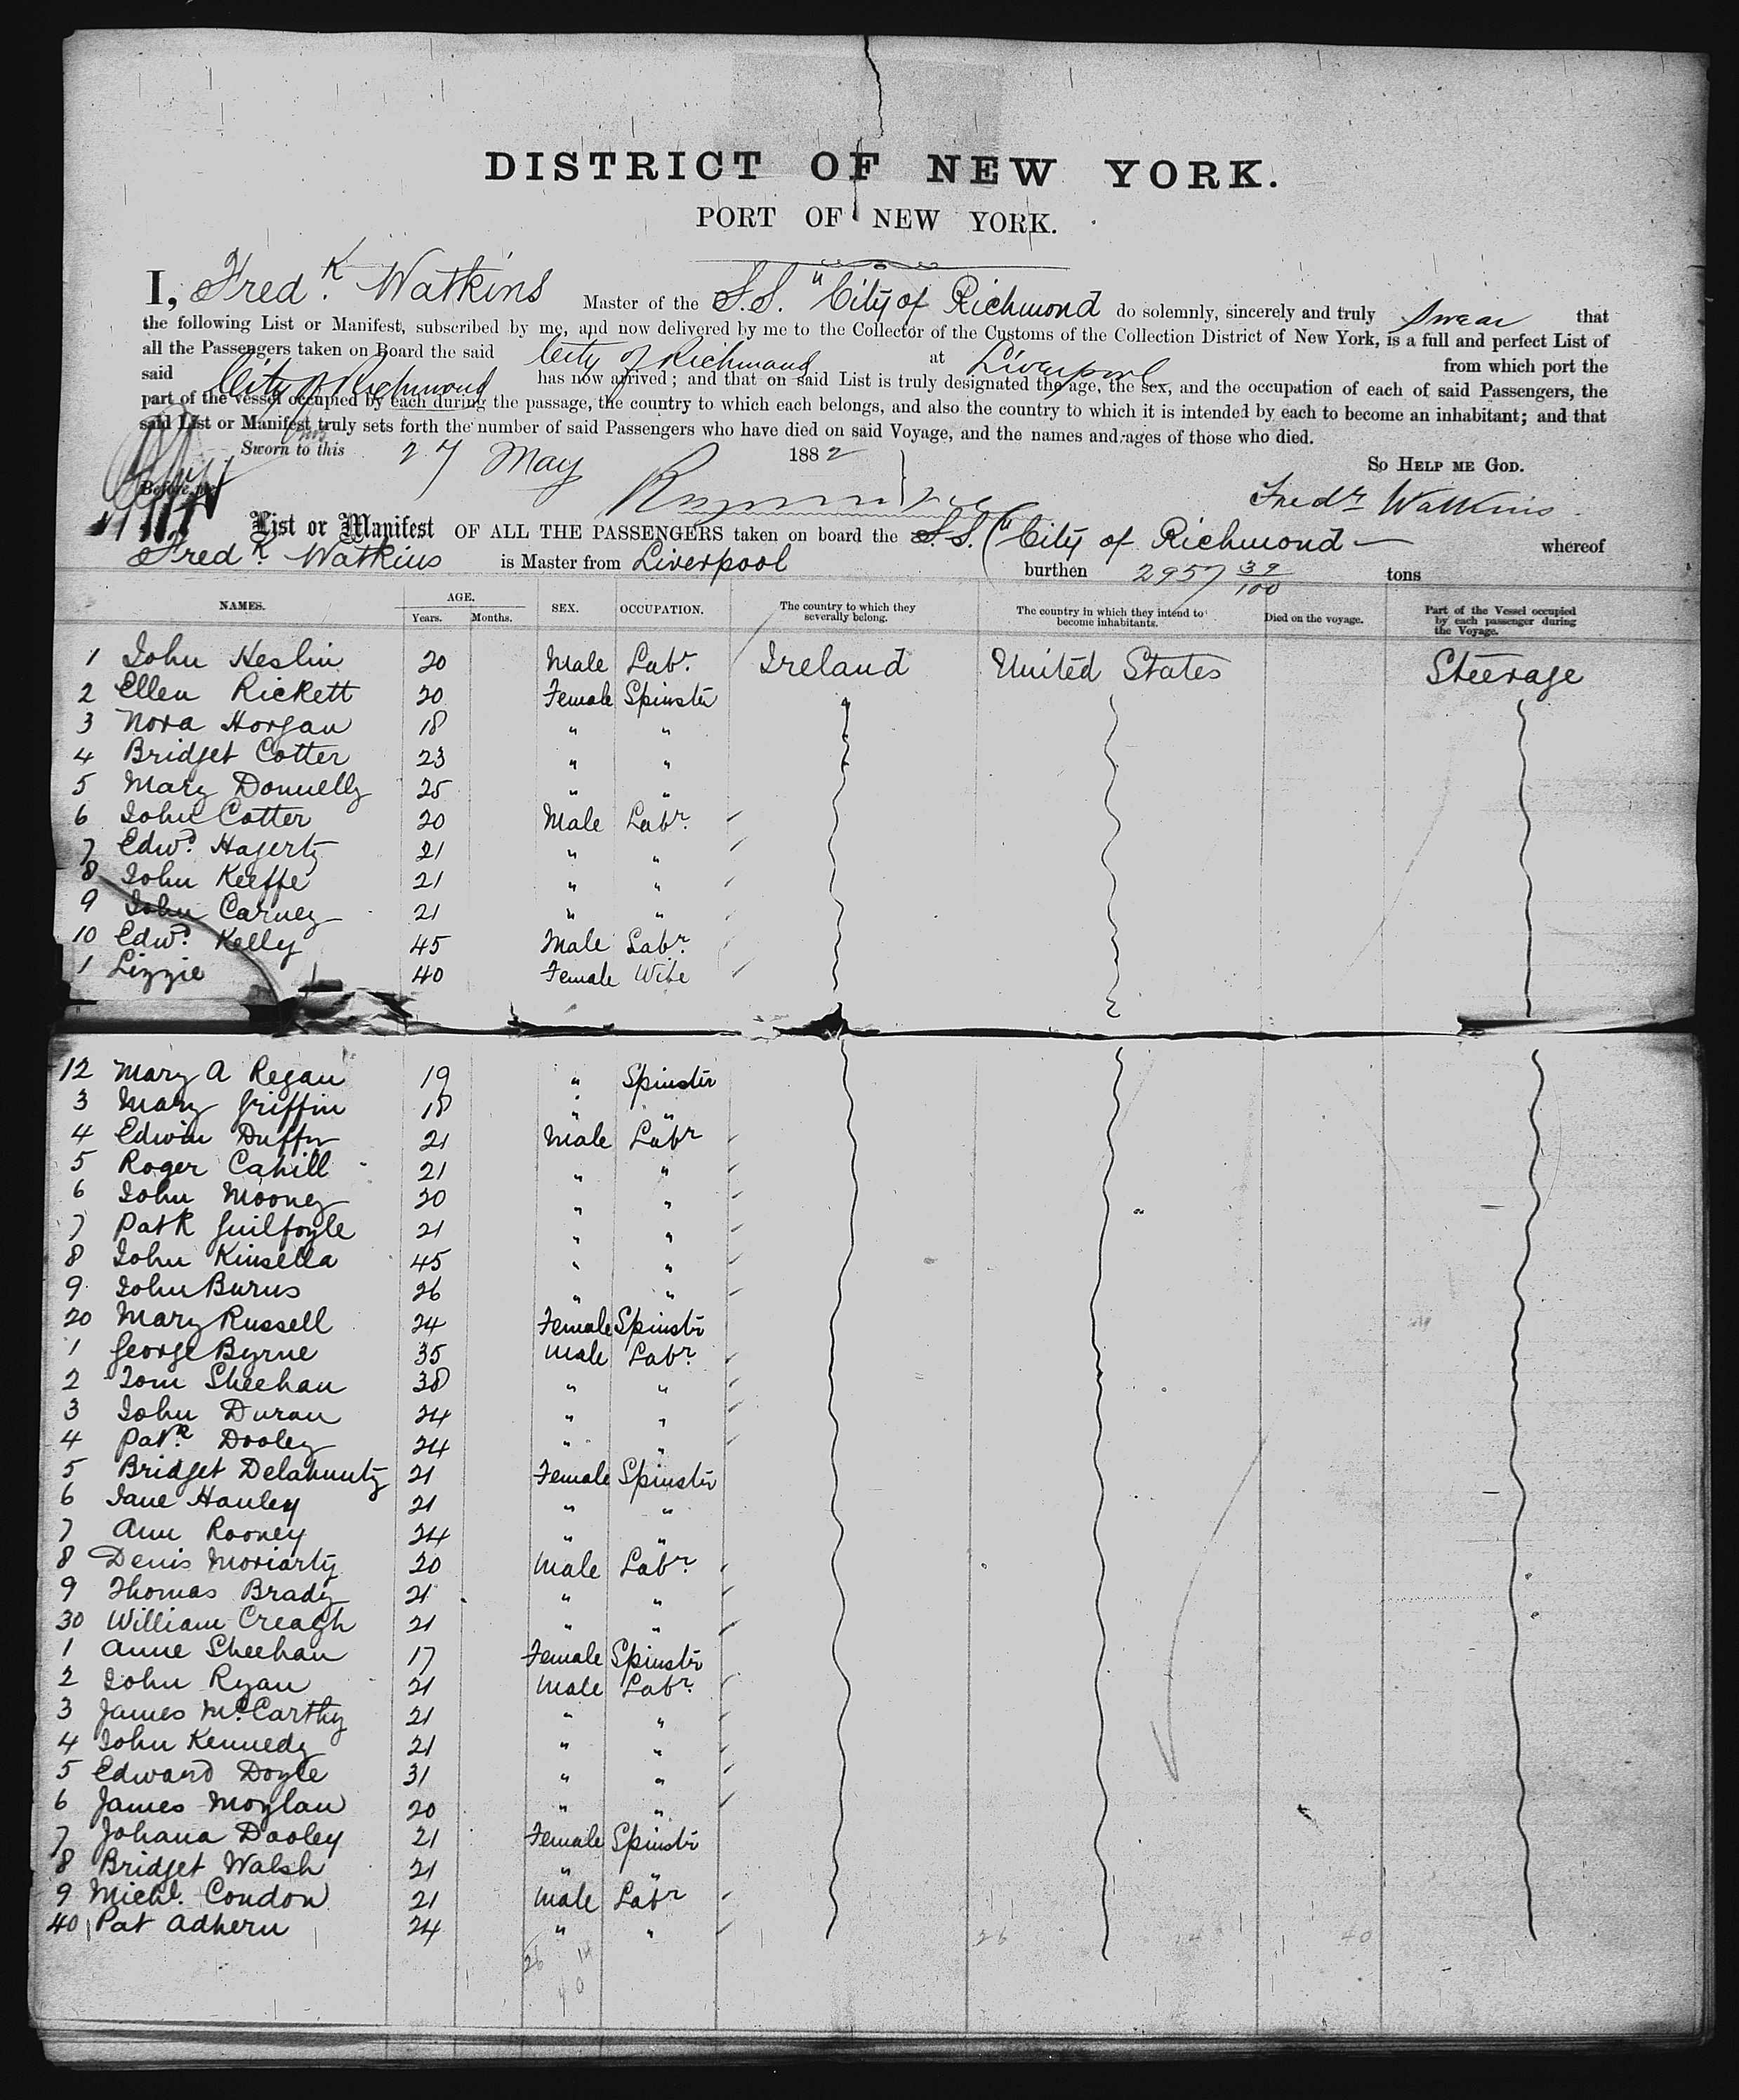 DISTRICT OF NEW YORK.
PORT OF NEW YORK.
I, Fredk. Watkins Master of the S.S. "City of Richmond do solemnly, sincerely and truly swear that
the following List or Manifest, subscribed by me, and now delivered by me to the Collector of the Customs of the Collection District of New York, is a full and perfect List of
all the Passengers taken on Board the said City of Richmond at Liverpool from which port the
said City of Richmond has now arrived; and that on said List is truly designated the age, the sex, and the occupation of each of said Passengers, the
part of the vessel occupied by each during the passage, the country to which each belongs, and also the country to which it is intended by each to become an inhabitant; and that
said List or Manifest truly sets forth the number of said Passengers who have died on said Voyage, and the names and ages of those who died.
Sworn to this 27 May 1882 So Help me God.
Before me Fredk Watkins
List or Manifest OF ALL THE PASSENGERS taken on board the S.S. "City of Richmond whereof
Fredk. Watkins is Master from Liverpool burthen 2957 39/100 tons
NAMES. AGE. Years. Months. SEX. OCCUPATION. The country to which they severally belong. The country in which they intend to become inhabitants. Died on the voyage. Part of the Vessel occupied by each passenger during the Voyage.
1 John Heslin 20 Male Labr. Ireland United States Steerage
2 Ellen Rickett 20 Female Spinster
3 Nora Horgan 18 " "
4 Bridget Cotter 23 " "
5 Mary Donnelly 25 " "
6 John Cotter 20 Male Labr.
7 Edwd. Hagerty 21 " "
8 John Keeffe 21 " "
9 John Carney 21 " "
10 Edwd. Kelly 45 Male Labr.
1 Lizzie 40 Female Wife
12 Mary A Regan 19 " Spinster
3 Mary Griffin 18 " "
4 Edwin Duffy 21 Male Labr
5 Roger Cahill 21 " "
6 John Mooney 20 " "
7 Patk Guilfoyle 21 " "
8 John Kinsella 45 " "
9 John Burns 26 " "
20 Mary Russell 24 Female Spinstr
1 George Byrne 35 Male Labr.
2 Tom Sheehan 38 " "
3 John Duran 24 " "
4 Patk. Dooley 24 " "
5 Bridget Delahunty 21 Female Spinster
6 Jane Hanley 21 " "
7 Ann Rooney 24 " "
8 Denis Moriarty 20 Male Labr.
9 Thomas Brady 21 " "
30 William Creagh 21 " "
1 Anne Sheehan 17 Female Spinstr
2 John Ryan 21 Male Labr.
3 James McCarthy 21 " "
4 John Kennedy 21 " "
5 Edward Doyle 31 " "
6 James Moylan 20 " "
7 Johana Dooley 21 Female Spinstr
8 Bridget Walsh 21 " "
9 Michl. Condon 21 Male Labr
40 Pat Adhern 24 " "
26 14 26 14 40
40